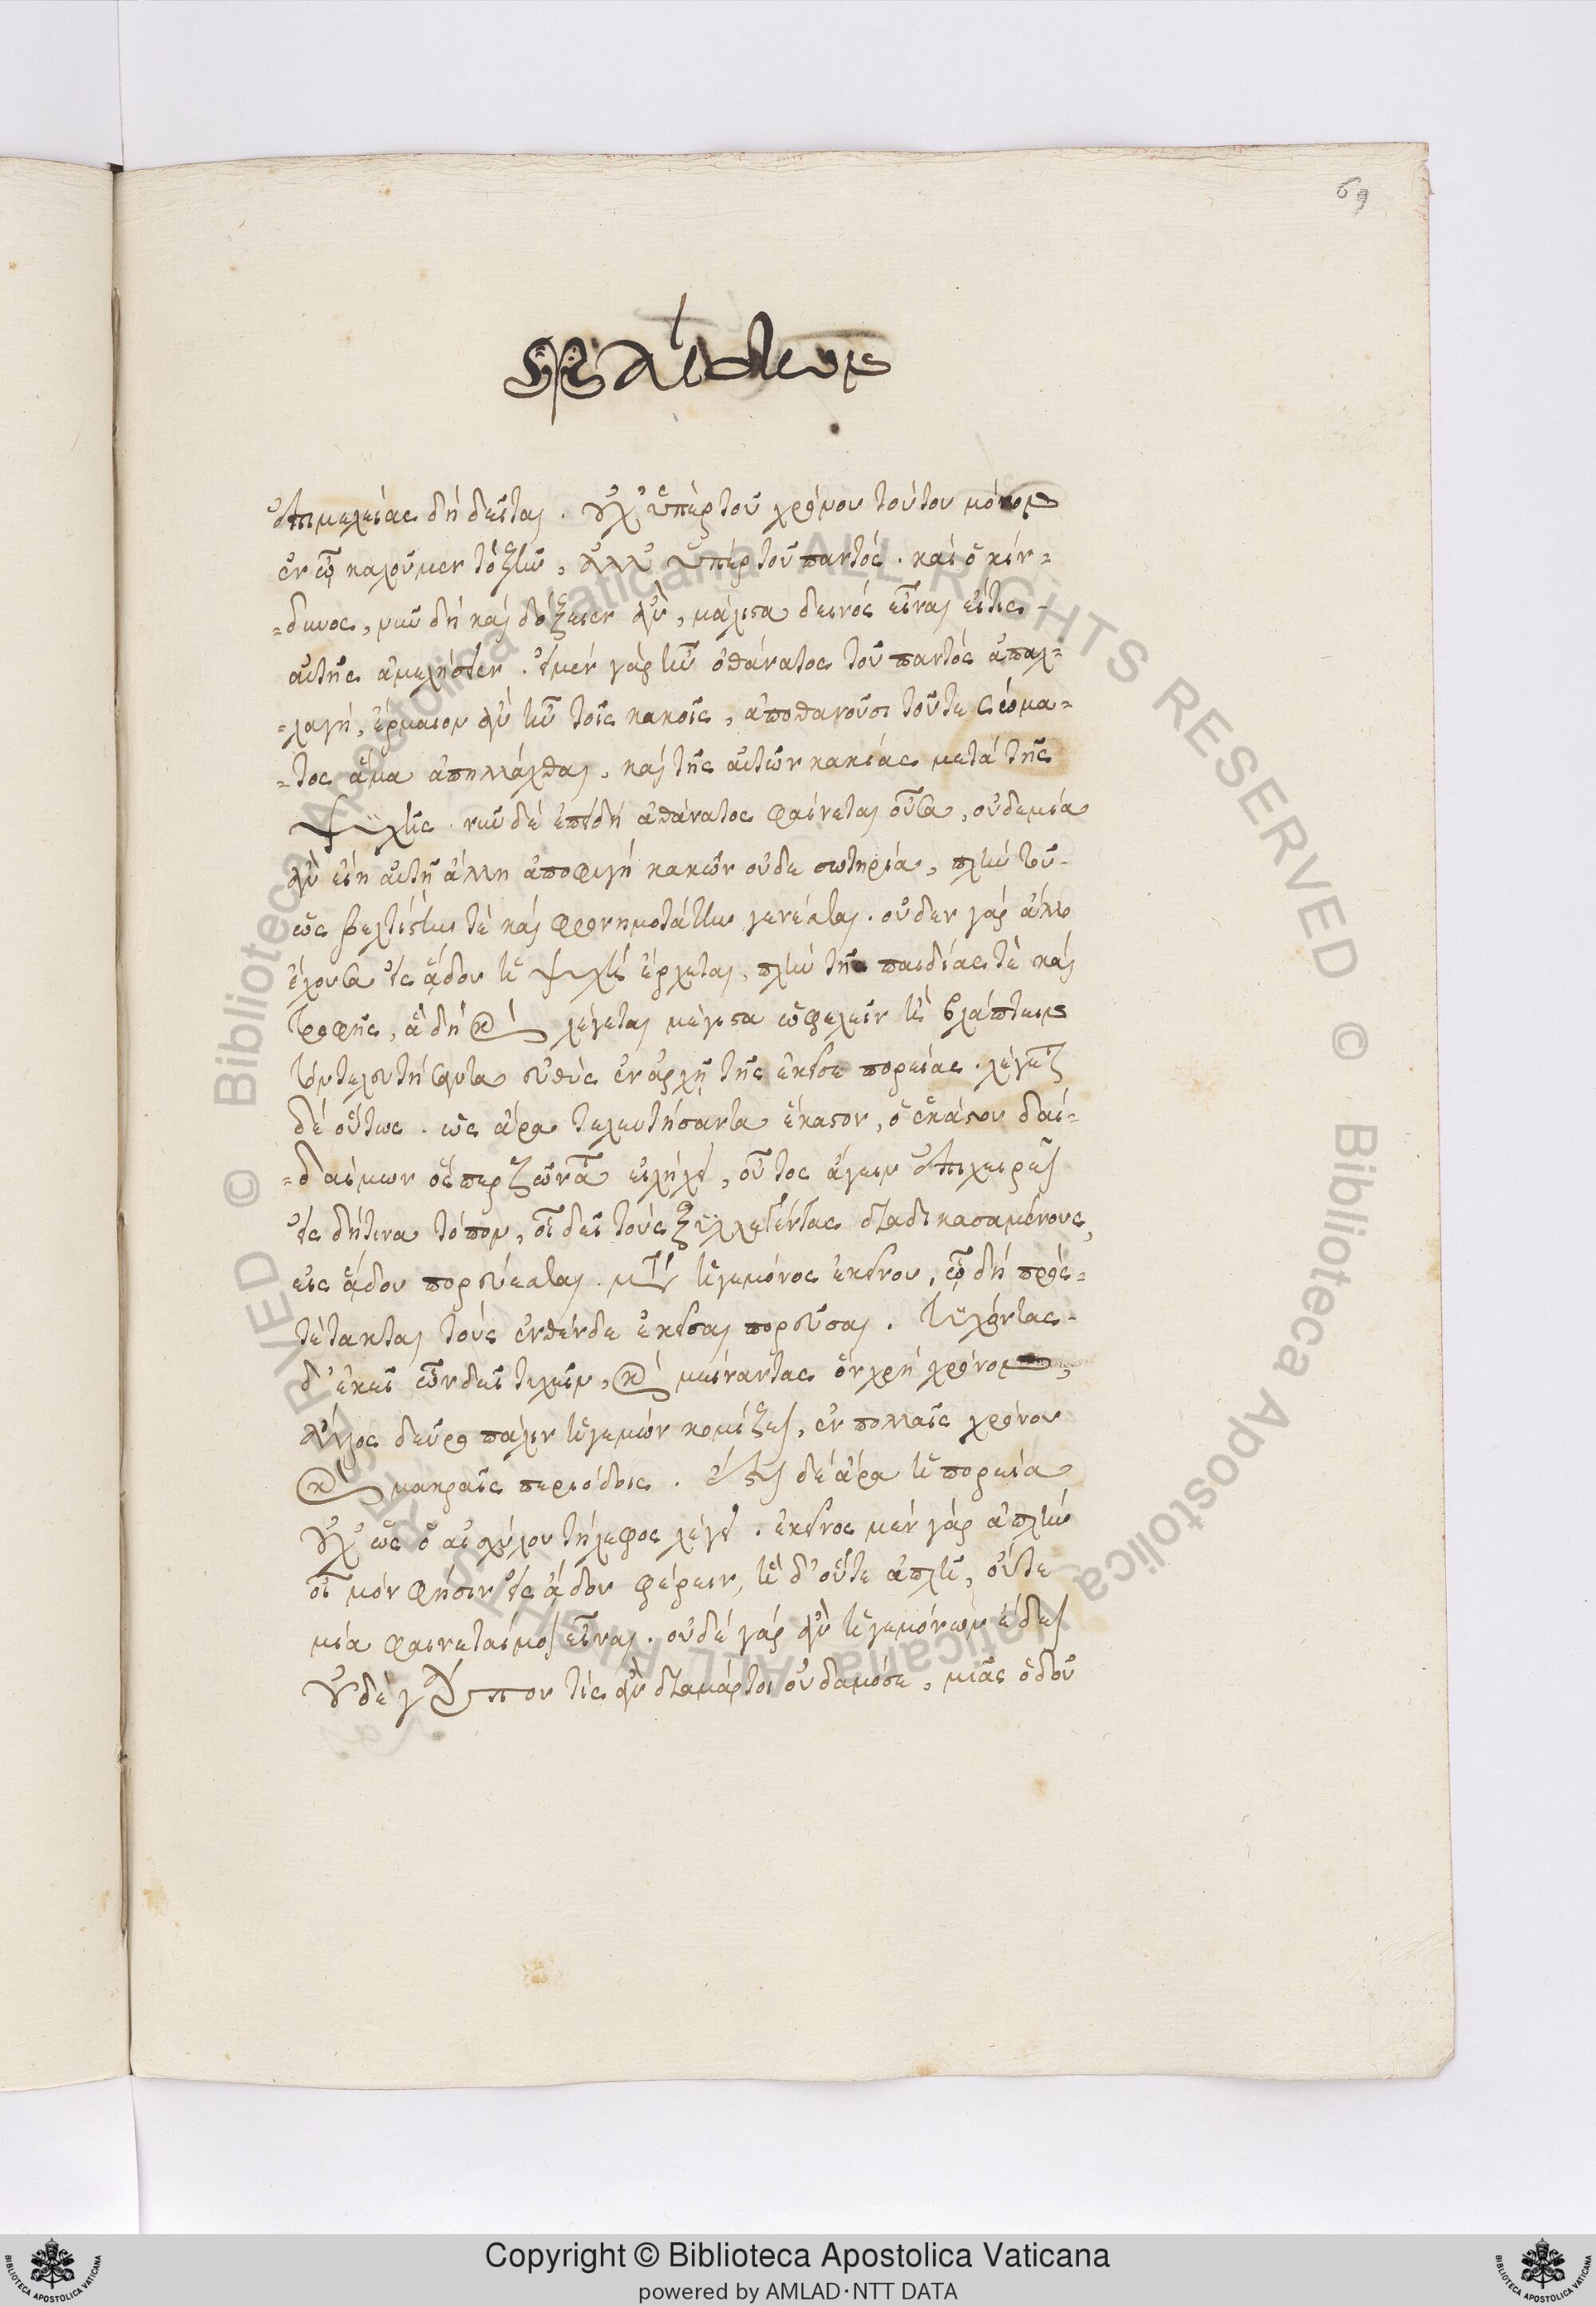 69
ἐπιμελείας δή δεῖται. οὐχ ὑπέρ τοῦ χρόνου τούτου μόνον
ἐν ᾧ καλοῦμεν τὸ ζῆν, ἀλλ' ὑπέρ τοῦ παντός. καί ὁ κίν=
=δυνος, νῦν δή καί δόξειεν ἄν, μάλιστα δεινός εἶναι εἴ τις
αὐτῆς ἀμελήσειεν. εἰ μέν γάρ ἦν ὁ θάνατος τοῦ παντός ἀπαλ=
=λαγή, ἕρμαιον ἄν ἦν τοῖς κακοῖς, ἀποθανοῦσι τοῦ τε σώμα=
=τος ἅμα ἀπηλλάχθαι, καί τῆς αὐτῶν κακίας μετά τῆς
ψυχῆς. νῦν δέ ἐπειδή ἀθάνατος φαίνεται οὖσα, οὐδεμία
ἄν εἴη αὐτῇ ἄλλη ἀποφυγή κακῶν οὐδε σωτηρία, πλήν τοῦ
ὡς βελτίστην τέ καί φρονιμοτάτην γενέσθαι. οὐδεν γάρ ἄλλο
ἔχουσα εἰς ᾅδου ἡ ψυχή ἔρχεται, πλήν τῆς παιδίας τέ καί
τροφῆς, ἅ δή καί λέγεται μέγιστα ὠφελεῖν ἤ βλάπτειν
τόν τελευτήσαντα εὐθύς ἐν ἀρχῇ τῆς ἐκεῖσε πορείας. λέγεται
δέ οὕτως. ὡς ἄρα τελευτήσαντα ἕκαστον, ὁ ἑκάστου δαί=
=δαίμων ὅσπερ ζῶντα εἰλήχει, οὗτος ἄγειν ἐπιχειρεῖ
εἰς δή τινα τόπον, οἷ δεῖ τούς ξυλλεγέντας διαδικασαμένους,
εἰς ᾅδου πορεύεσθαι. μετά ἡγεμόνος ἐκείνου, ᾧ δή προσ=
τέτακται τούς ἐνθένδε ἐκεῖσαι πορεῦσαι. τυχόντας
δ' ἐκεῖ ὧν δεῖ τυχεῖν, καί μείναντας ὅν χρή χρόνον,
ἄλλος δεῦρο πάλιν ἡγεμών κομίζει, ἐν πολλαῖς χρόνου
καί μακραῖς περιόδοις. ἔστι δέ ἄρα ἡ πορεία
οὐχ ὡς ὁ αἰσχύλου τήλεφος λέγει. ἐκεῖνος μέν γάρ ἁπλήν
οἶμόν φησιν εἰς ᾅδου φέρειν, ἡ δ' οὔτε ἁπλῆ, οὔτε
μία φαίνεταί μοι εἶναι. οὐδέ γάρ ἄν ἡγεμόνων ἔδει
οὐδέ γάρ που τίς ἄν διαμάρτοι οὐδαμόσε, μιᾶς ὁδοῦ
© Biblioteca Apostolica Vaticana ALL RIGHTS RESERVED
Copyright © Biblioteca Apostolica Vaticana
powered by AMLAD・NTT DATA
BIBLIOTECA APOSTOLICA VATICANA
BIBLIOTECA APOSTOLICA VATICANA